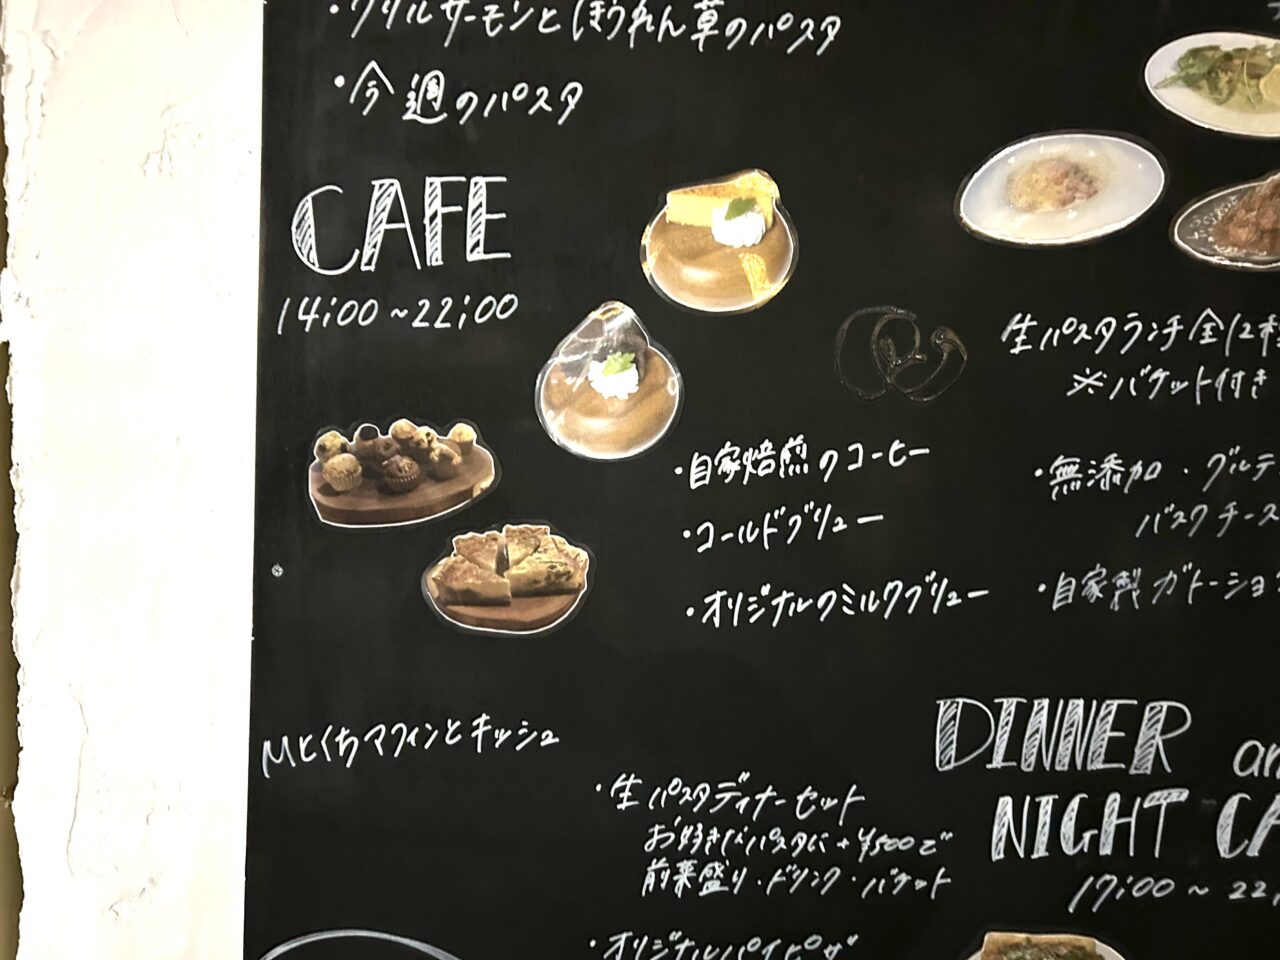 ・ワイルサーモンとほうれん草のパスタ
・今週のパスタ
CAFE
14:00~22:00
生パスタランチ 全12種
※バケット付き
・自家焙煎のコーヒー
・コールドブリュー
・オリジナルのミルクブリュー
・無添加・グルテ
バスクチース
・自家製ガトーショコ
ひとくちマフィンとキッシュ
DINNER an
NIGHT CA
17:00~22:
・生パスタディナーセット
お好きなパスタに+¥500で
前菜盛り・ドリンク・バケット
・オリジナルパイピザ